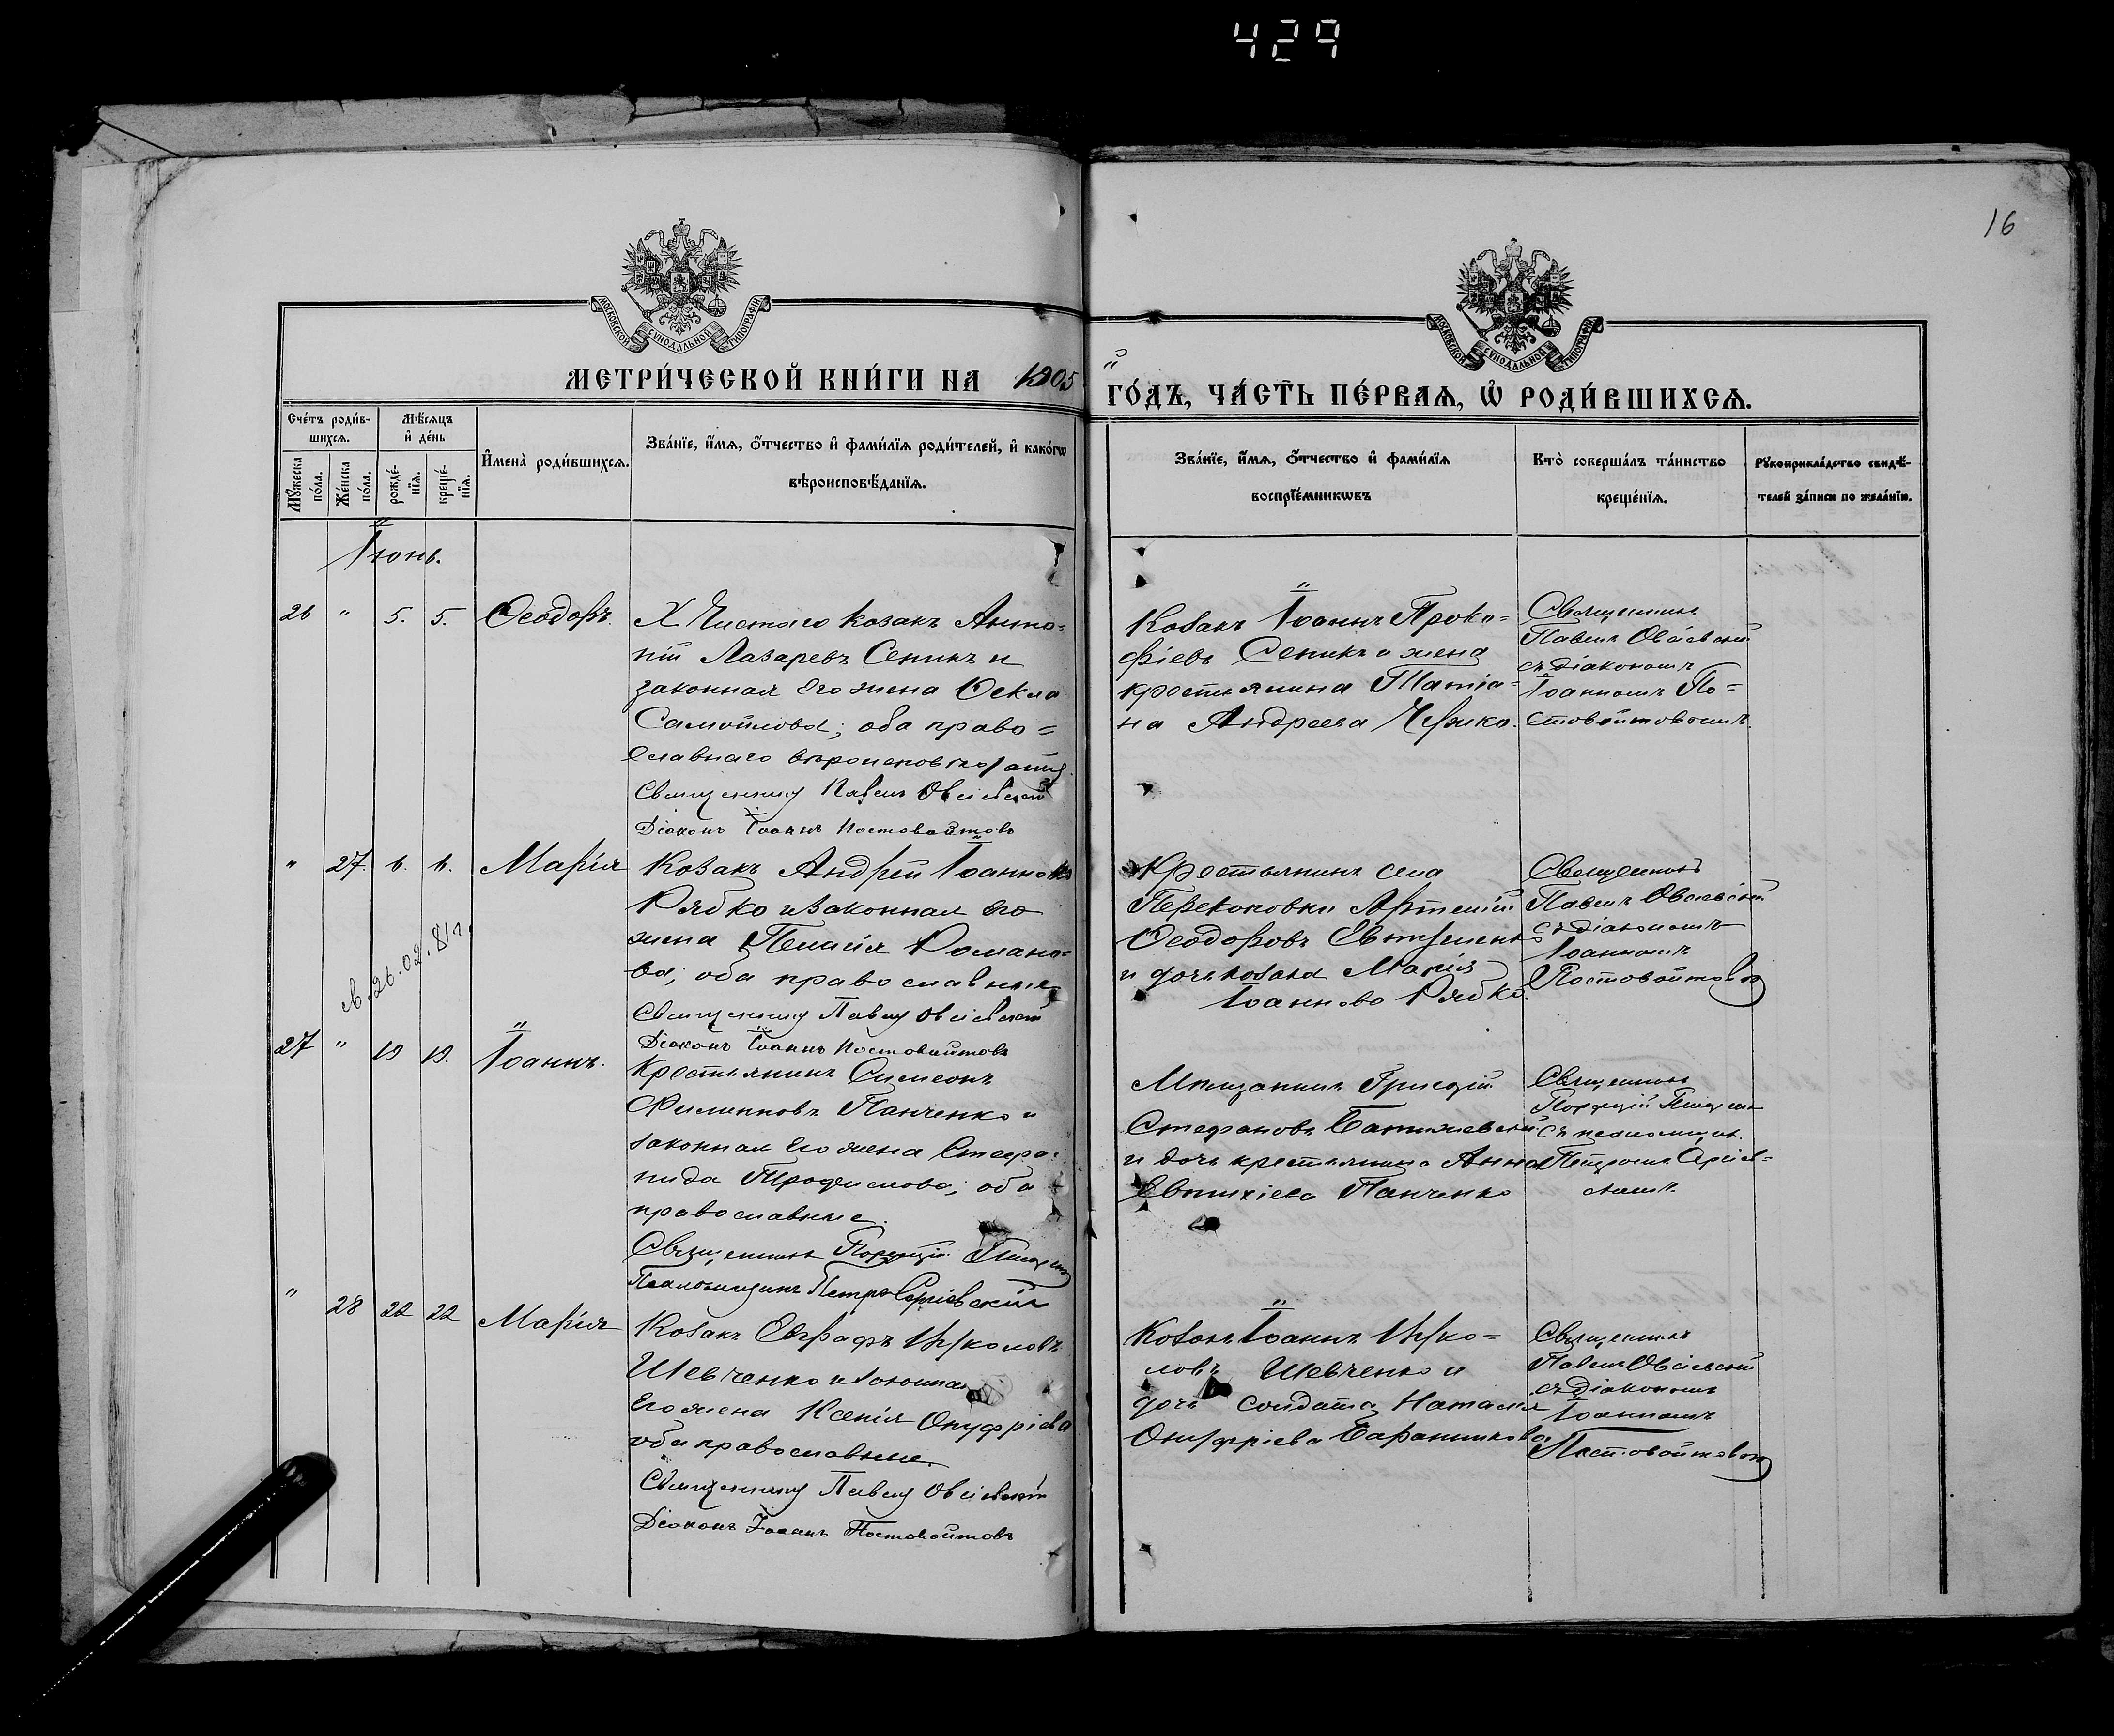 429
16
МОСКОВСКОЙ СУНОДАЛЬНОЙ ТИПОГРАФІИ
МОСКОВСКОЙ СУНОДАЛЬНОЙ ТИПОГРАФІИ
МЕТРИ́ЧЕСКОЙ КНИ́ГИ НА 1905
й ГО́ДЪ, ЧА́СТЬ ПЕ́РВАѦ, Ѡ҆ РОДИ́ВШИХСѦ.
Сче́тъ роди́в-
шихсѧ.
Мѣ́сѧцъ
и҆ де́нь
Мꙋ́жеска
по́ла.
Же́нска
по́ла.
рожде́-
нїѧ.
креще́-
нїѧ.
И҆мена̀ роди́вшихсѧ.
Зва́нїе, и҆́мѧ, ѻ҆́тчество и҆ фами́лїѧ роди́телей, и҆ како́гѡ
вѣроисповѣ́данїѧ.
Зва́нїе, и҆́мѧ, ѻ҆́тчество и҆ фами́лїѧ
воспрїе́мникѡвъ
Кто̀ соверша́лъ та́инство
креще́нїѧ.
Рꙋкоприкла́дство свидѣ́-
телей за́писи по жела́нїю.
Іюнь.
26 " 5. 5. Ѳеодоръ.
Х Чистаго козакъ Анто-
ній Лазаревъ Сеникъ и
законная его жена Ѳекла
Самойлова; оба право=
славнаго вѣроисповѣданія
Священникъ Павелъ Овсіевскій
Діаконъ Іоаннъ Постовойтовъ
Козакъ Іоаннъ Проко=
фіевъ Сеникъ и жена
крестьянина Татіа-
на Андреева
Священникъ
Павелъ Овсіевскій
съ діакономъ
Іоанномъ По=
стовойтовымъ.
" 27. 6. 6. Марія
Козакъ Андрей Іоанновъ
Рябко и законная его
жена Пелагія Романо-
ва; оба православные
Священникъ Павелъ Овсіевскій
Діаконъ Іоаннъ Постовойтовъ
Крестьянинъ села
Перекоповки Артемій
Ѳеодоровъ Евтушенко
и дочь козака Марія
Іоаннова Рябко.
Священникъ
Павелъ Овсіевскій
съ діакономъ
Іоанномъ
Постовойтовымъ
26.02.81г.
27 " 19 19. Іоаннъ.
Крестьянинъ Симеонъ
Филипповъ Панченко и
законная его жена Стефа-
нида Трофимова; оба
православные.
Священникъ
Псаломщикъ Петръ Сергіевскій
Мѣщанинъ Григорій
Стефановъ
и дочь крестьянина Анна
Евтихіева Панченко
Священникъ
съ псаломщик.
Петромъ Сергіев=
скимъ.
" 28 22 22 Марія
Козакъ Евграфъ
Шевченко и законная
его жена Ксенія Онуфріева
оба православные.
Священникъ Павелъ Овсіевскій
Діаконъ Іоаннъ Постовойтовъ
Козакъ Іоаннъ
Шевченко и
дочь солдата Наталія
Онуфріева Баранникова
Священникъ
Павелъ Овсіевскій
съ діакономъ
Іоанномъ
Постовойтовымъ